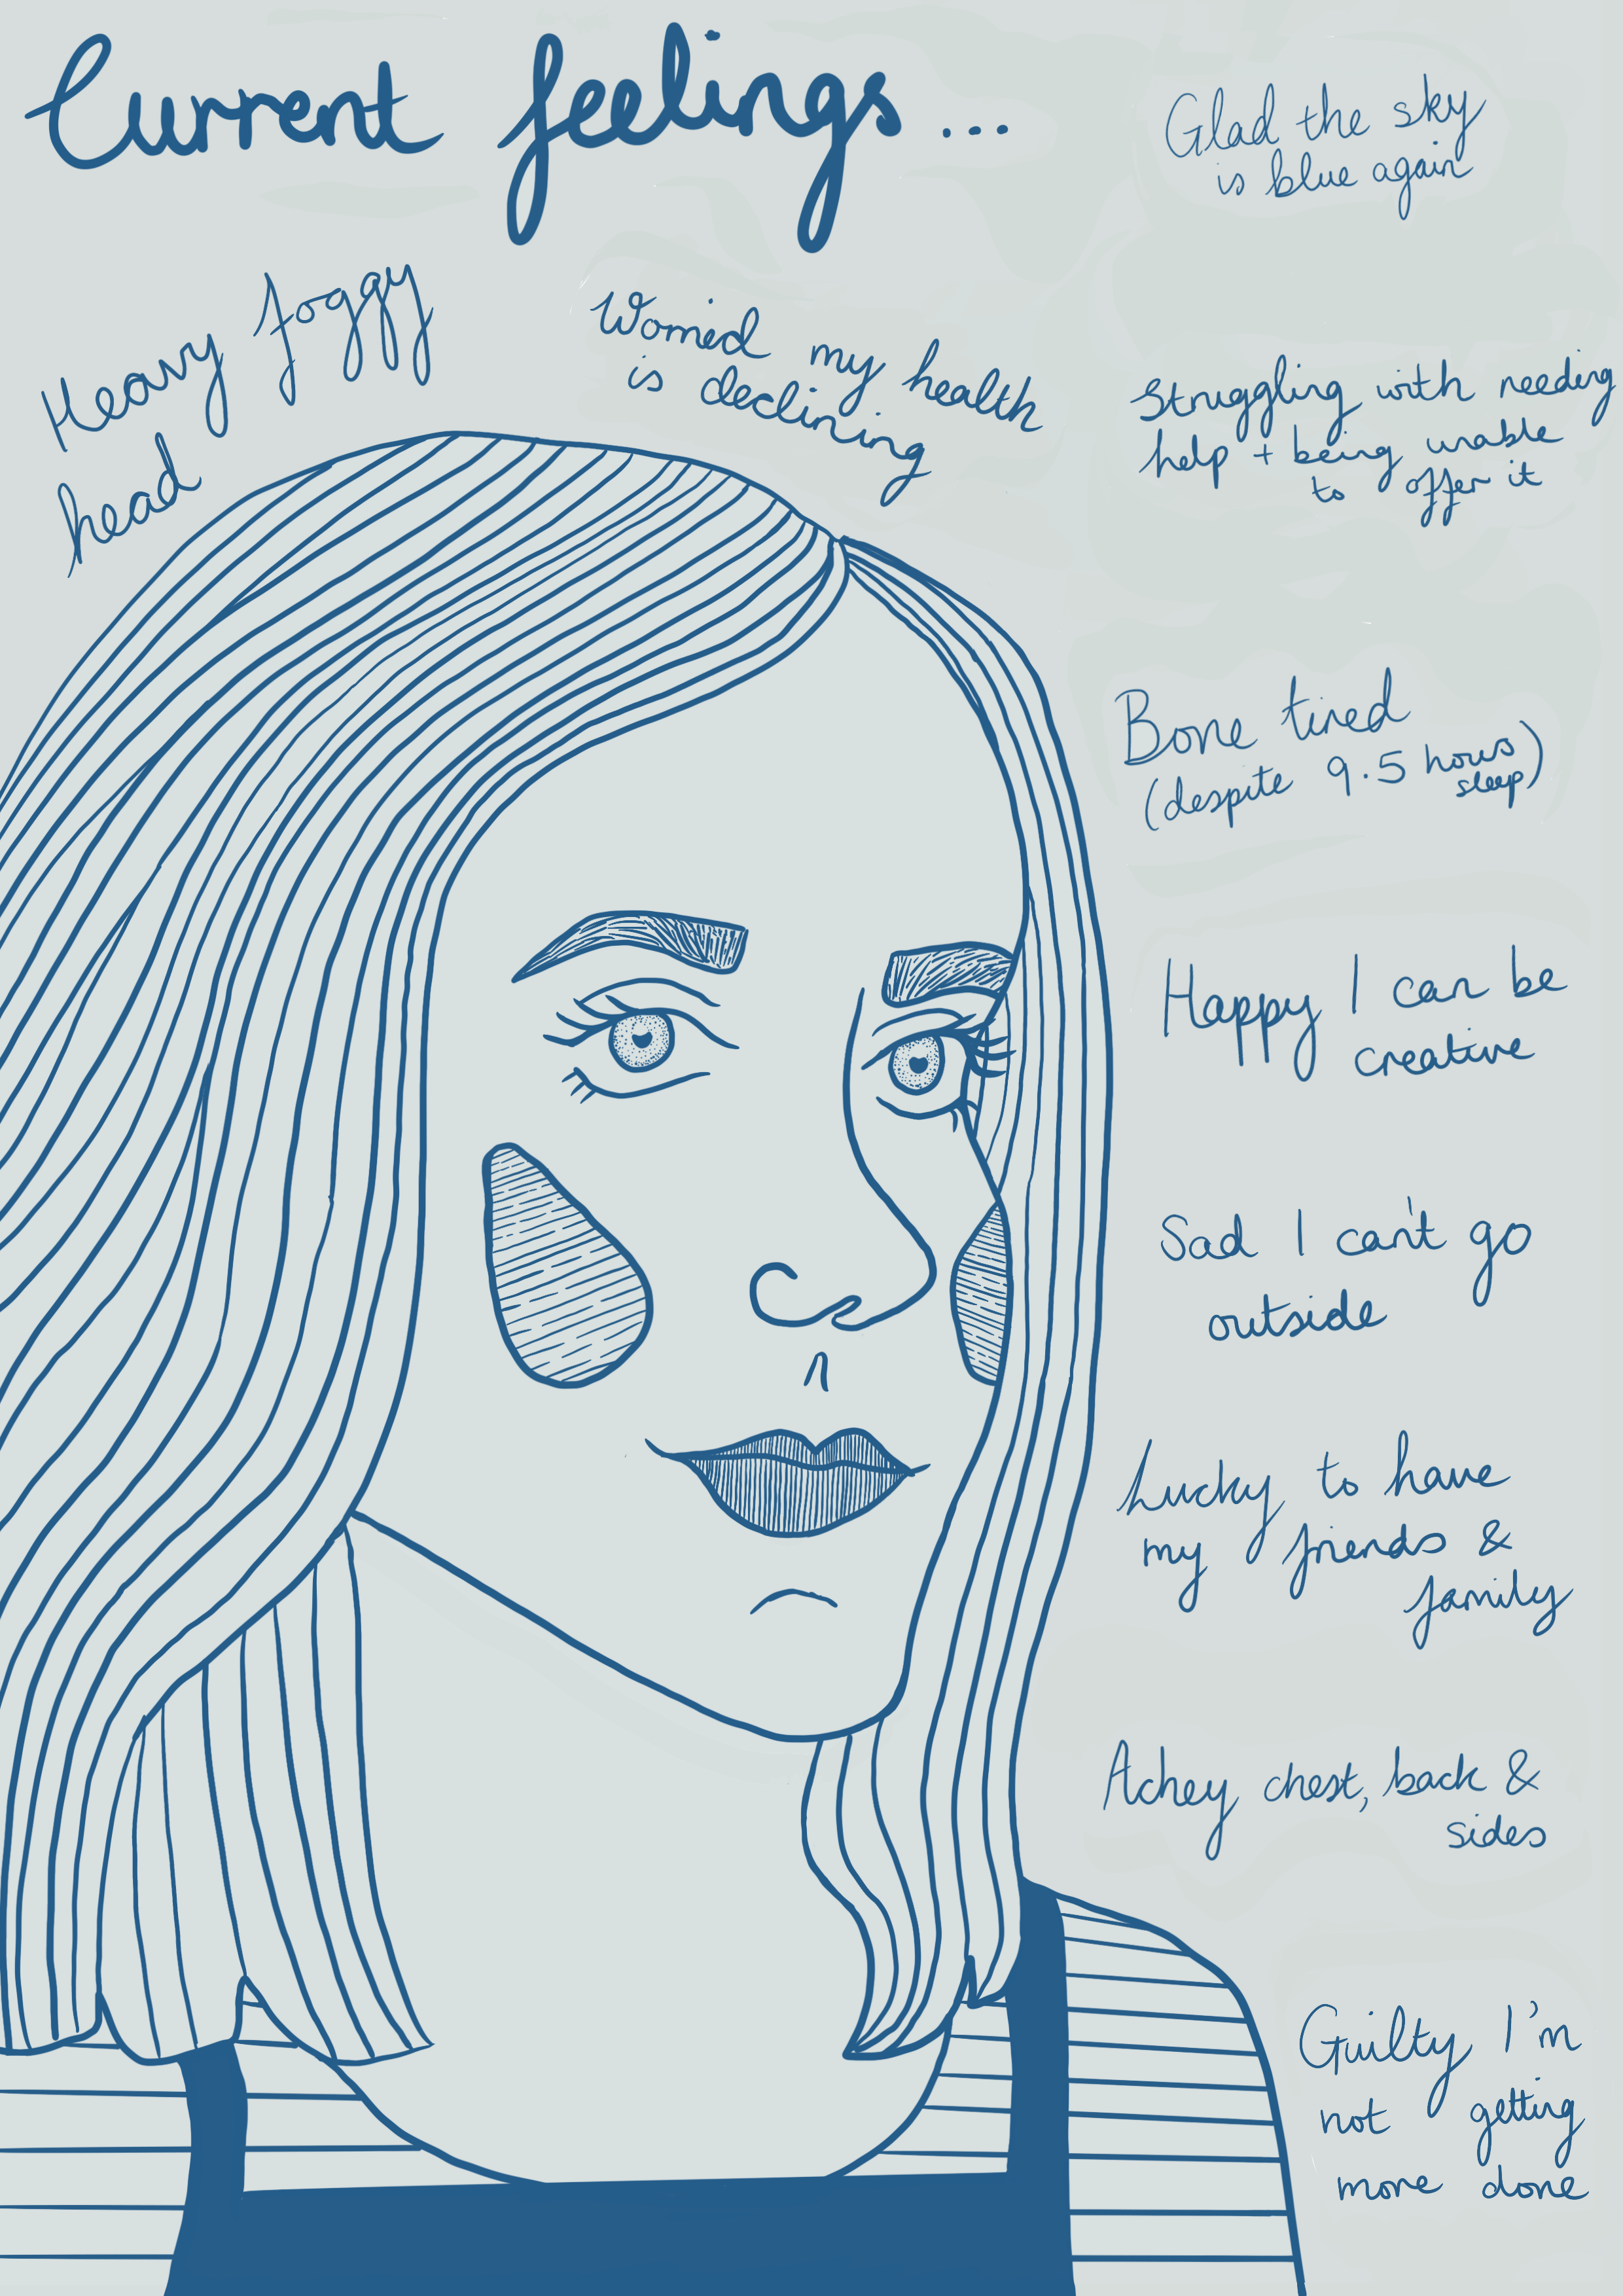 Current feelings...
Glad the sky
is blue again
Heavy foggy
head
Worried my health
is declining
Struggling with needing
help + being unable
to offer it
Bone tired
(despite 9.5 hours
sleep)
Happy I can be
creative
Sad I can't go
outside
Lucky to have
my friends &
family
Achey chest, back &
sides
Guilty I'm
not getting
more done